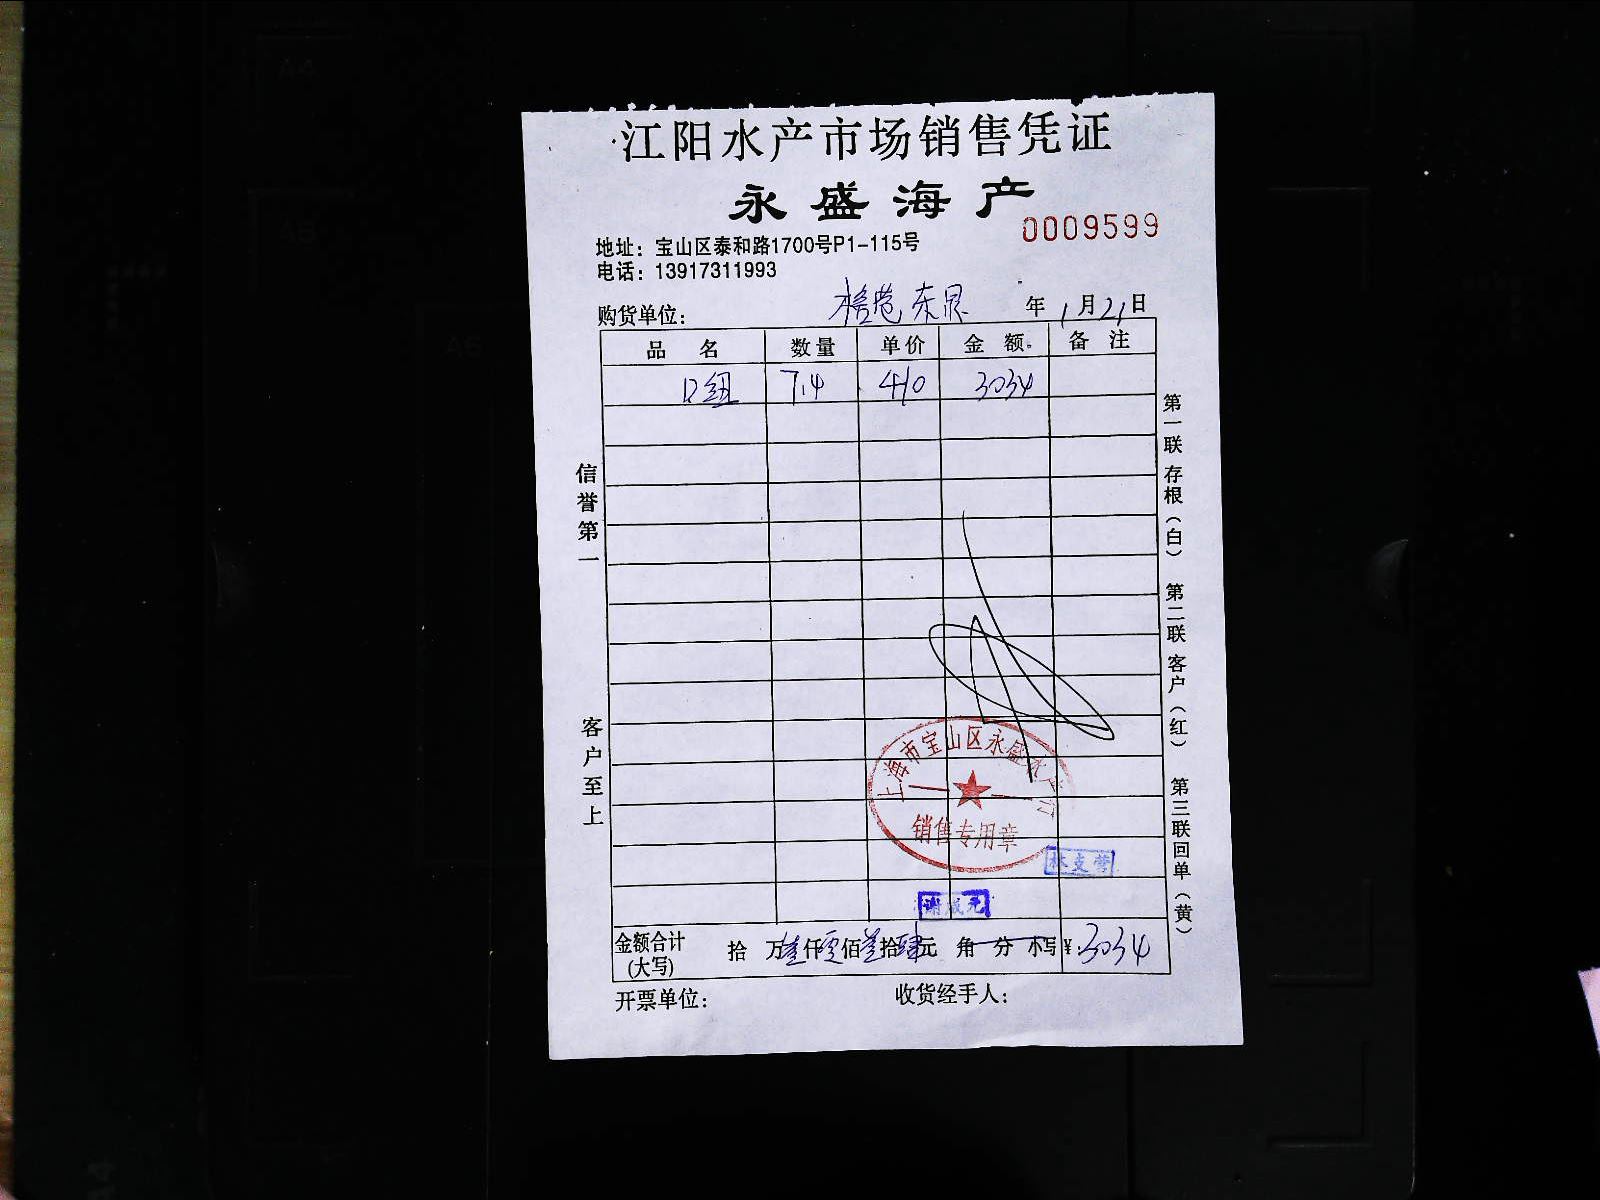 江阳水产市场销售凭证
永盛海产
0009599
地址：宝山区泰和路1700号P1-115号
电话：13917311993
购货单位： 年 1 月 21 日
品名 数量 单价 金额 备注
7.4 410 3034
信誉第一
客户至上
第一联 存根（白） 第二联 客户（红） 第三联 回单（黄）
上海市宝山区永盛水产行
销售专用章
林支营
谢成元
金额合计 拾 万叁仟零佰叁拾肆元 角 分 小写¥：3034
(大写)
开票单位： 收货经手人：
A4
A5
A6